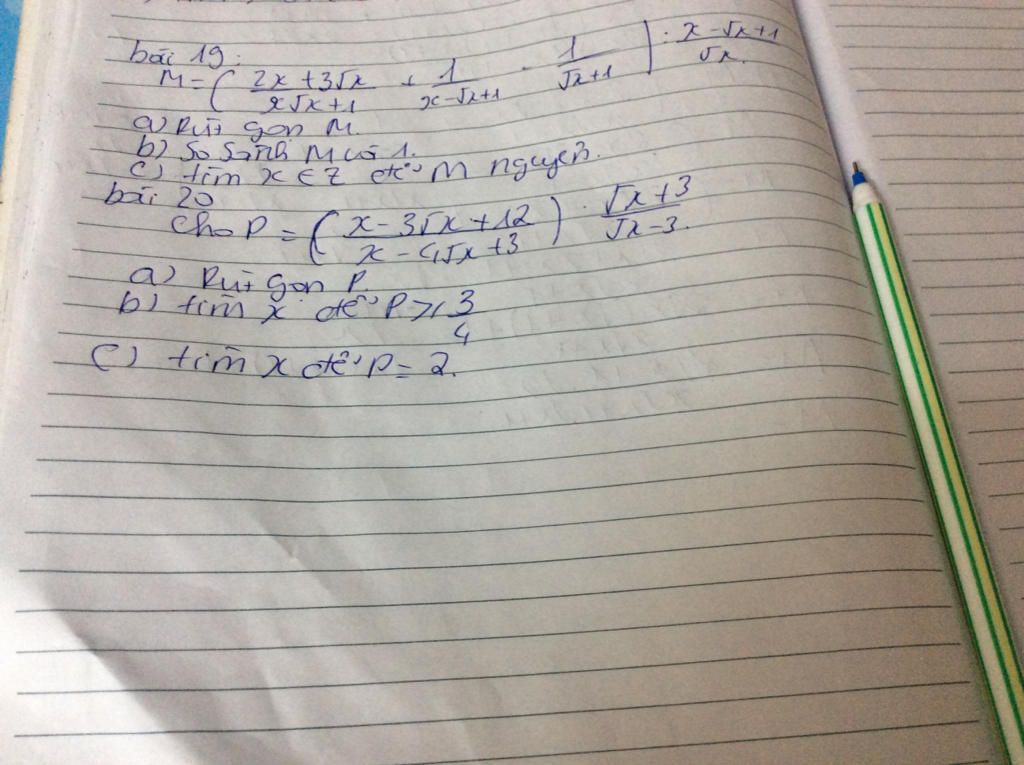 bài 19:
M = ( 2x + 3√x / x√x + 1 + 1 / x - √x + 1 - 1 / √x + 1 ) : x - √x + 1 / √x.
a) Rút gọn M.
b) So Sánh M với 1.
c) tìm x ∈ Z để M nguyên.
bài 20
Cho P = ( x - 3√x + 12 / x - 4√x + 3 ) : √x + 3 / √x - 3.
a) Rút gọn P.
b) tìm x để P ≥ 3/4
c) tìm x để P = 2.